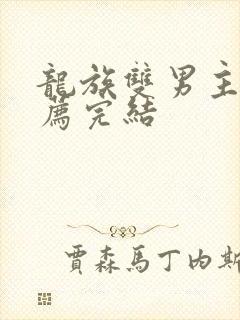 龍族雙男主
薦完結
賈森馬丁內斯